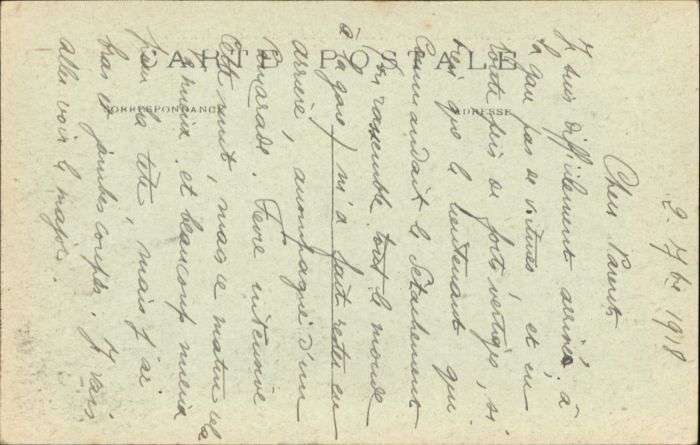 CARTE POSTALE
CORRESPONDANCE
ADRESSE
2. 7bre 1918
Chers Parents
Je suis difficilement arrivé, à
la gare pas de voitures, et eu
toute fois de forts vertiges, si
bien que le lieutenant qui
Commandait le Détachement
(on rassemble tout le monde
à la gare) m'a fait rester en
arrière, accompagné d'un
Camarade. Fièvre intensive
cette nuit, mais ce matin
mieux et beaucoup mieux
pour la tête, mais j'ai
bras et jambes coupés. Je vais
aller voir le major.